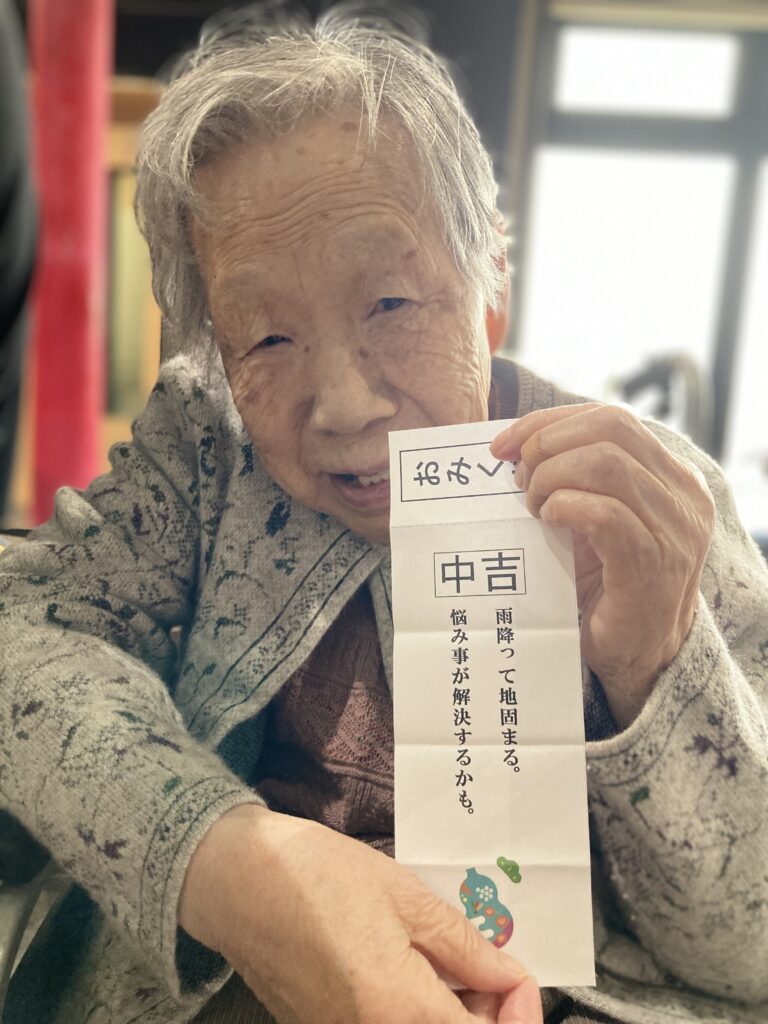 おみく
中吉
雨降って地固まる。
悩み事が解決するかも。